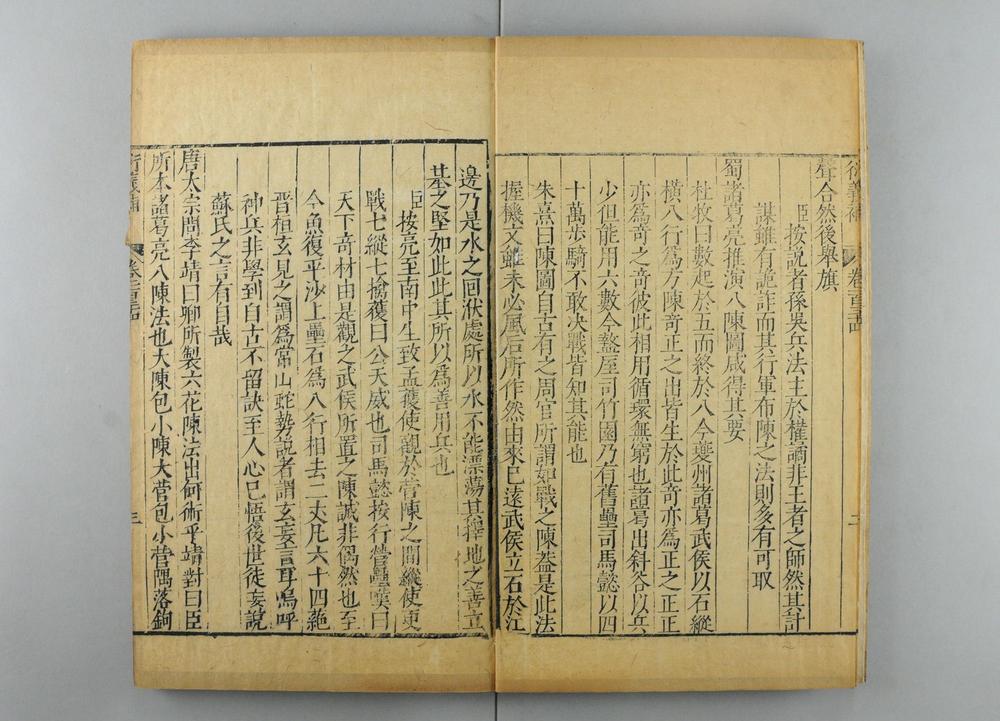 衍義補 卷一百三十四
聲合然後舉旗
臣按說者孫吳兵法主於權譎非王者之師然其計
謀雖有詭詐而其行軍布陳之法則多有可取
蜀諸葛亮推演八陳圖咸得其要
杜牧曰數起於五而終於八今夔州諸葛武侯以石縱
橫八行爲方陳奇正之出皆生於此奇亦爲正之正正
亦爲奇之奇彼此相用循環無窮也諸葛出斜谷以兵
少但能用六數今盩厔司竹園乃有舊壘司馬懿以四
十萬步騎不敢决戰皆知其能也
朱熹曰陳圖自古有之周官所謂如戰之陳葢是此法
握機文雖未必風后所作然由來已遠武侯立石於江
邊乃是水之回洑處所以水不能漂蕩其擇地之善立
基之堅如此此其所以爲善用兵也
臣按亮至南中生致孟獲使觀於營陳之間縱使更
戰七縱七擒獲曰公天威也司馬懿按行營壘嘆曰
天下奇材由是觀之武侯所置之陳誠非偶然也至
今魚復平沙上壘石爲八行相去二丈凡六十四蕝
晉桓玄見之謂爲常山蛇勢說者謂玄妄言耳嗚呼
神兵非學到自古不留訣至人心已悟後世徒妄說
蘇氏之言有自哉
唐太宗問李靖曰卿所製六花陳法出何術乎靖對曰臣
所本諸葛亮八陳法也大陳包小陳大營包小營隅落鉤